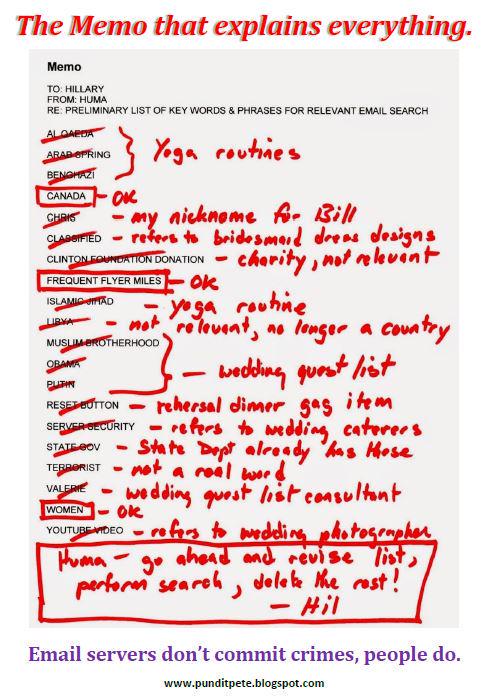 The Memo that explains everything.
Memo
TO: HILLARY
FROM: HUMA
RE: PRELIMINARY LIST OF KEY WORDS & PHRASES FOR RELEVANT EMAIL SEARCH
AL QAEDA
ARAB SPRING Yoga routines
BENGHAZI
CANADA - OK
CHRIS - my nickname for Bill
CLASSIFIED - refers to bridesmaid dress designs
CLINTON FOUNDATION DONATION - charity, not relevant
FREQUENT FLYER MILES - OK
ISLAMIC JIHAD - Yoga routine
LIBYA - not relevant, no longer a country
MUSLIM BROTHERHOOD
OBAMA - wedding guest list
PUTIN
RESET BUTTON - rehersal dinner gag item
SERVER SECURITY - refers to wedding caterers
STATE.GOV - State Dept already has these
TERRORIST - not a real word
VALERIE - wedding guest list consultant
WOMEN - OK
YOUTUBE VIDEO - refers to wedding photographer
Huma - go ahead and revise list,
perform search, delete the rest!
- Hil
Email servers don't commit crimes, people do.
www.punditpete.blogspot.com